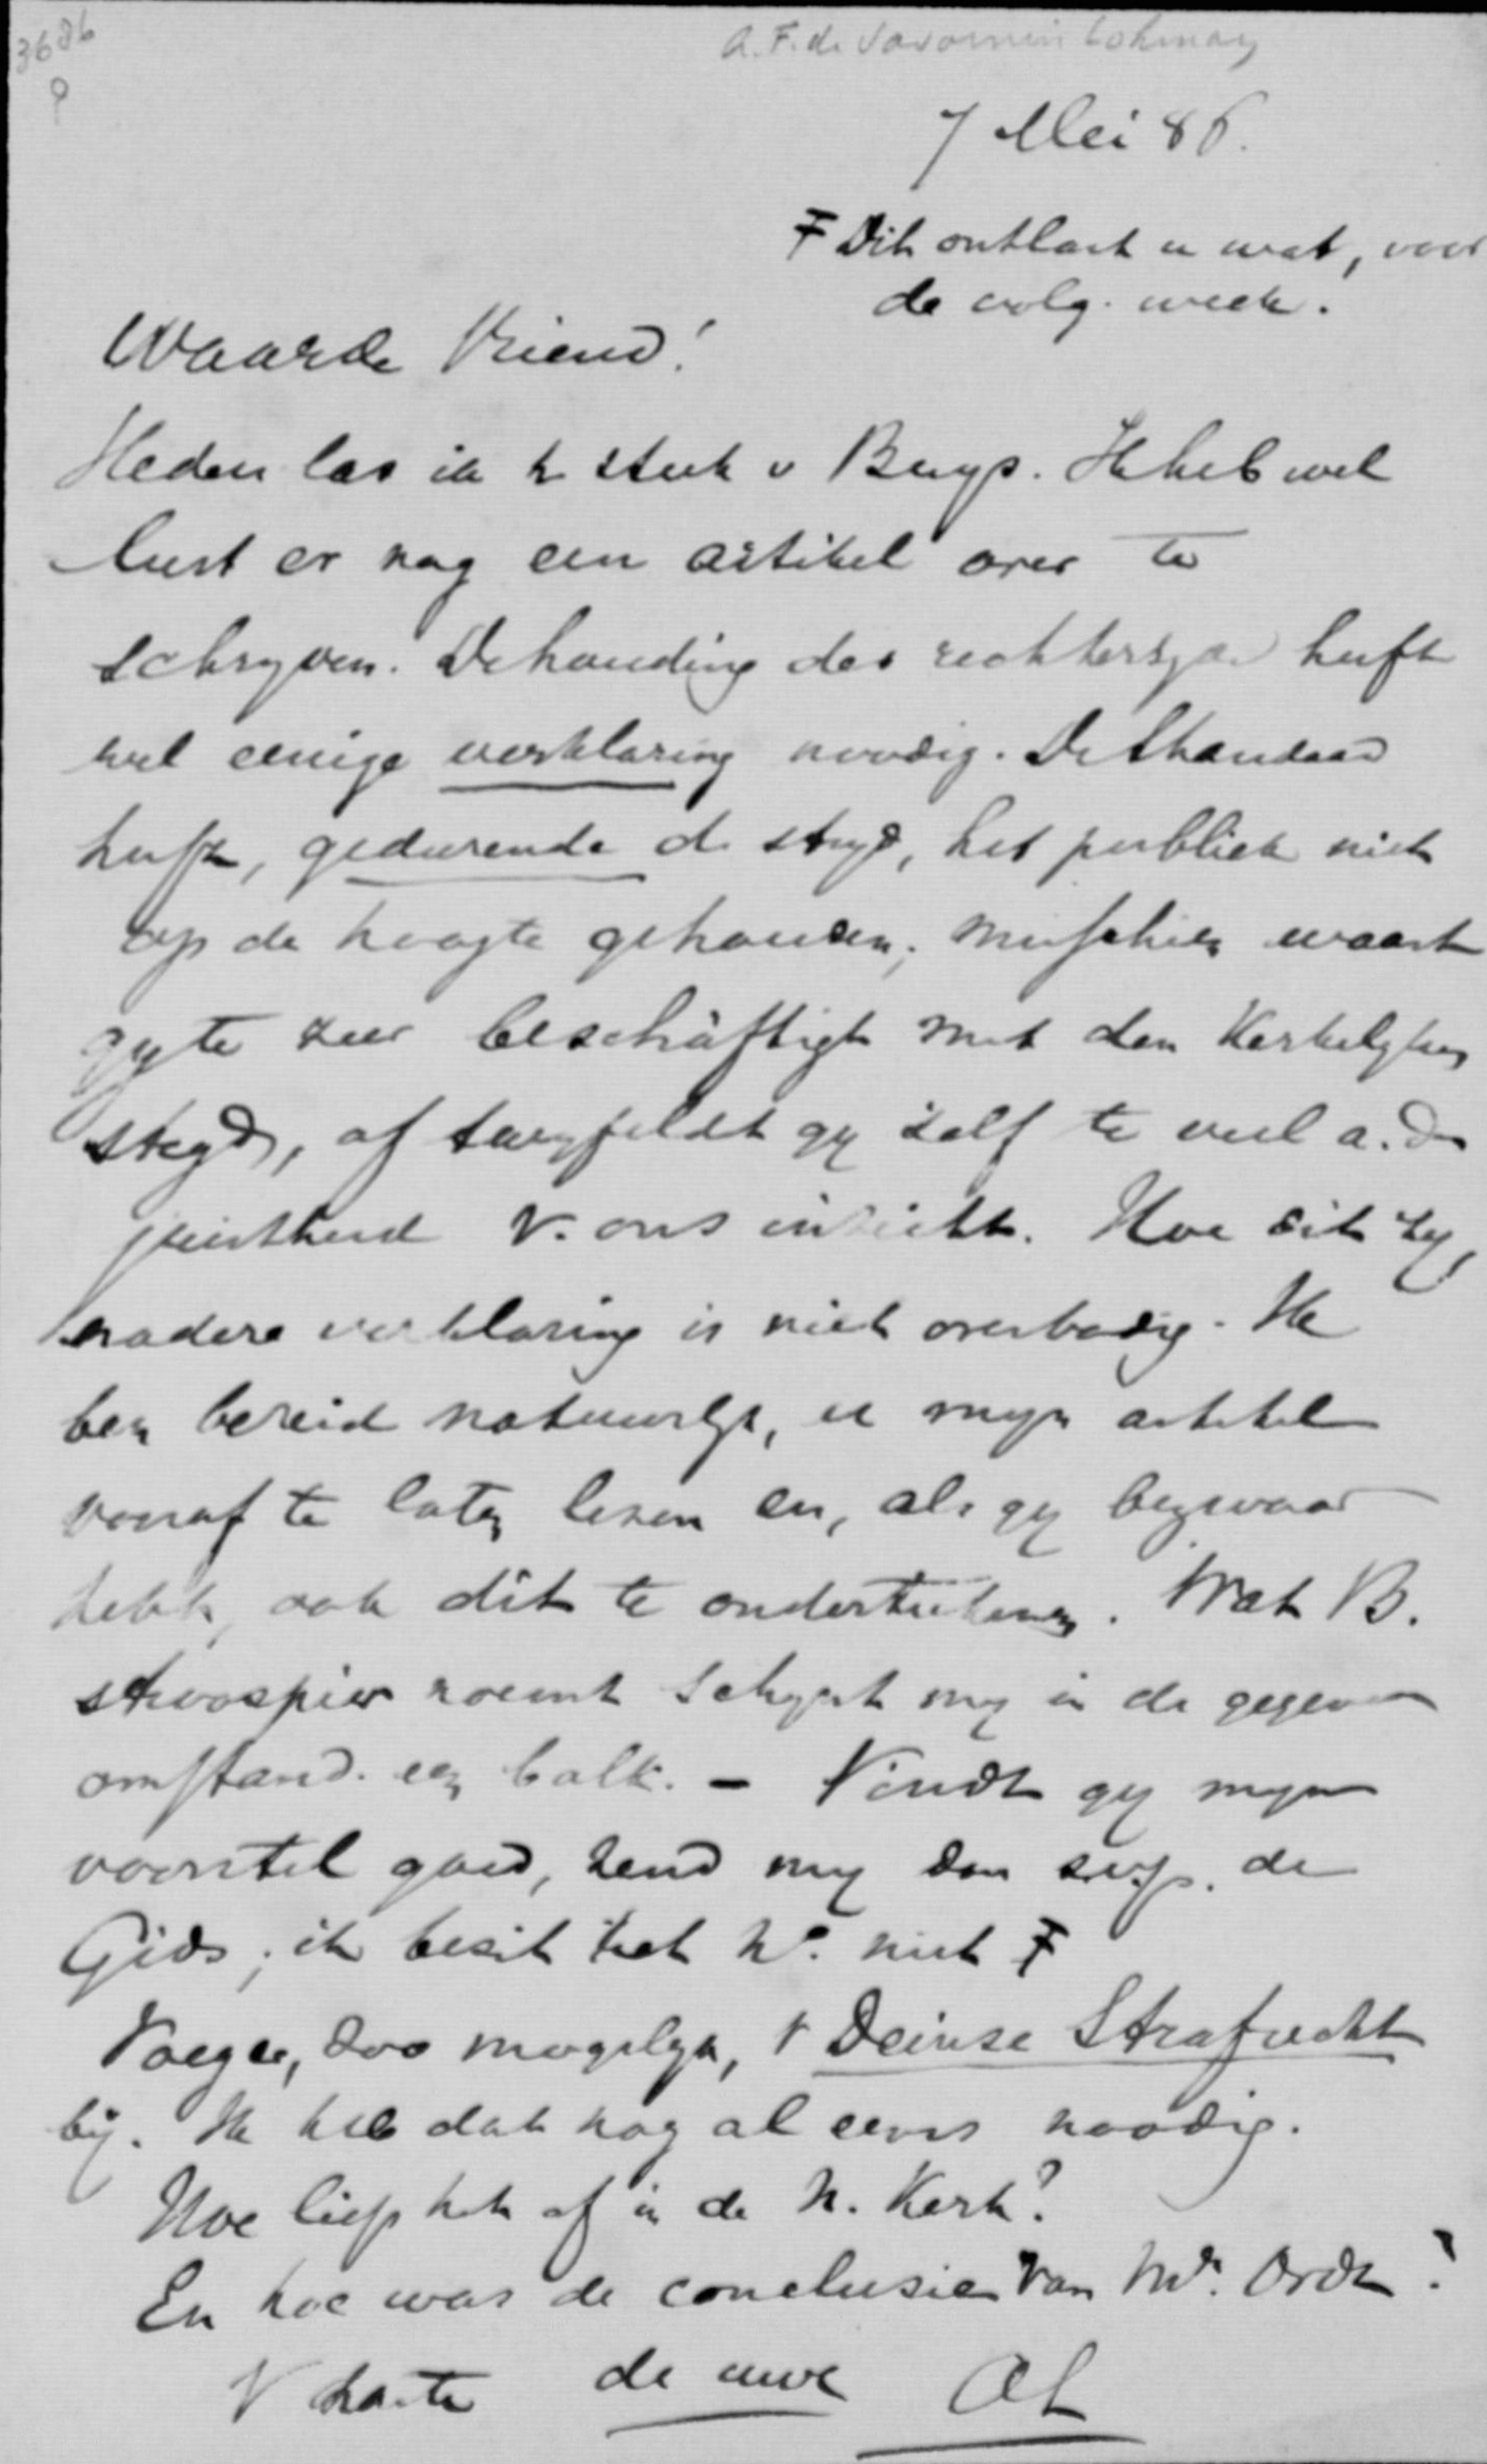 3686
A.F. de Savornin Lohman
7 Mei 86.
Ŧ Dit ontlast u wat, voor
de volg. week.
Waarde Vriend!
Heden las ik h stuk v Buys. Ik heb wel
lust er nog een artikel over te
schryven. De houding der rechterzyde heeft
wel eenige verklaring noodig. De Standaard
heeft, gedurende d. stryd, het publiek niet
op de hoogte gehouden; misschien waart
gy te zeer beschäftigt met den Kerkelyken
stryd, of twyfeldet gy zelf te veel a. de
juistheid v. ons inzicht. Hoe dit zy,
nadere verklaring is niet overbodig. Ik
ben bereid natuurlyk, u myn artikel
vooraf te laten lezen en, als gy bezwaar
hebt, ook dit te onderteekenen. Wat B.
stroospier noemt schynt my in de gegeven
omstand. een balk. — Vindt gy myn
voorstel goed, zend my dan s.v.p. de
Gids; ik bezit het No. niet Ŧ
Voeg er, zoo mogelyk, v Deinse Strafrecht
bij. Ik heb dat nog al eens noodig.
Hoe liep het af in de N. Kerk?
En hoe was de conclusie van Mr. Ordt?
V harte de uwe AL